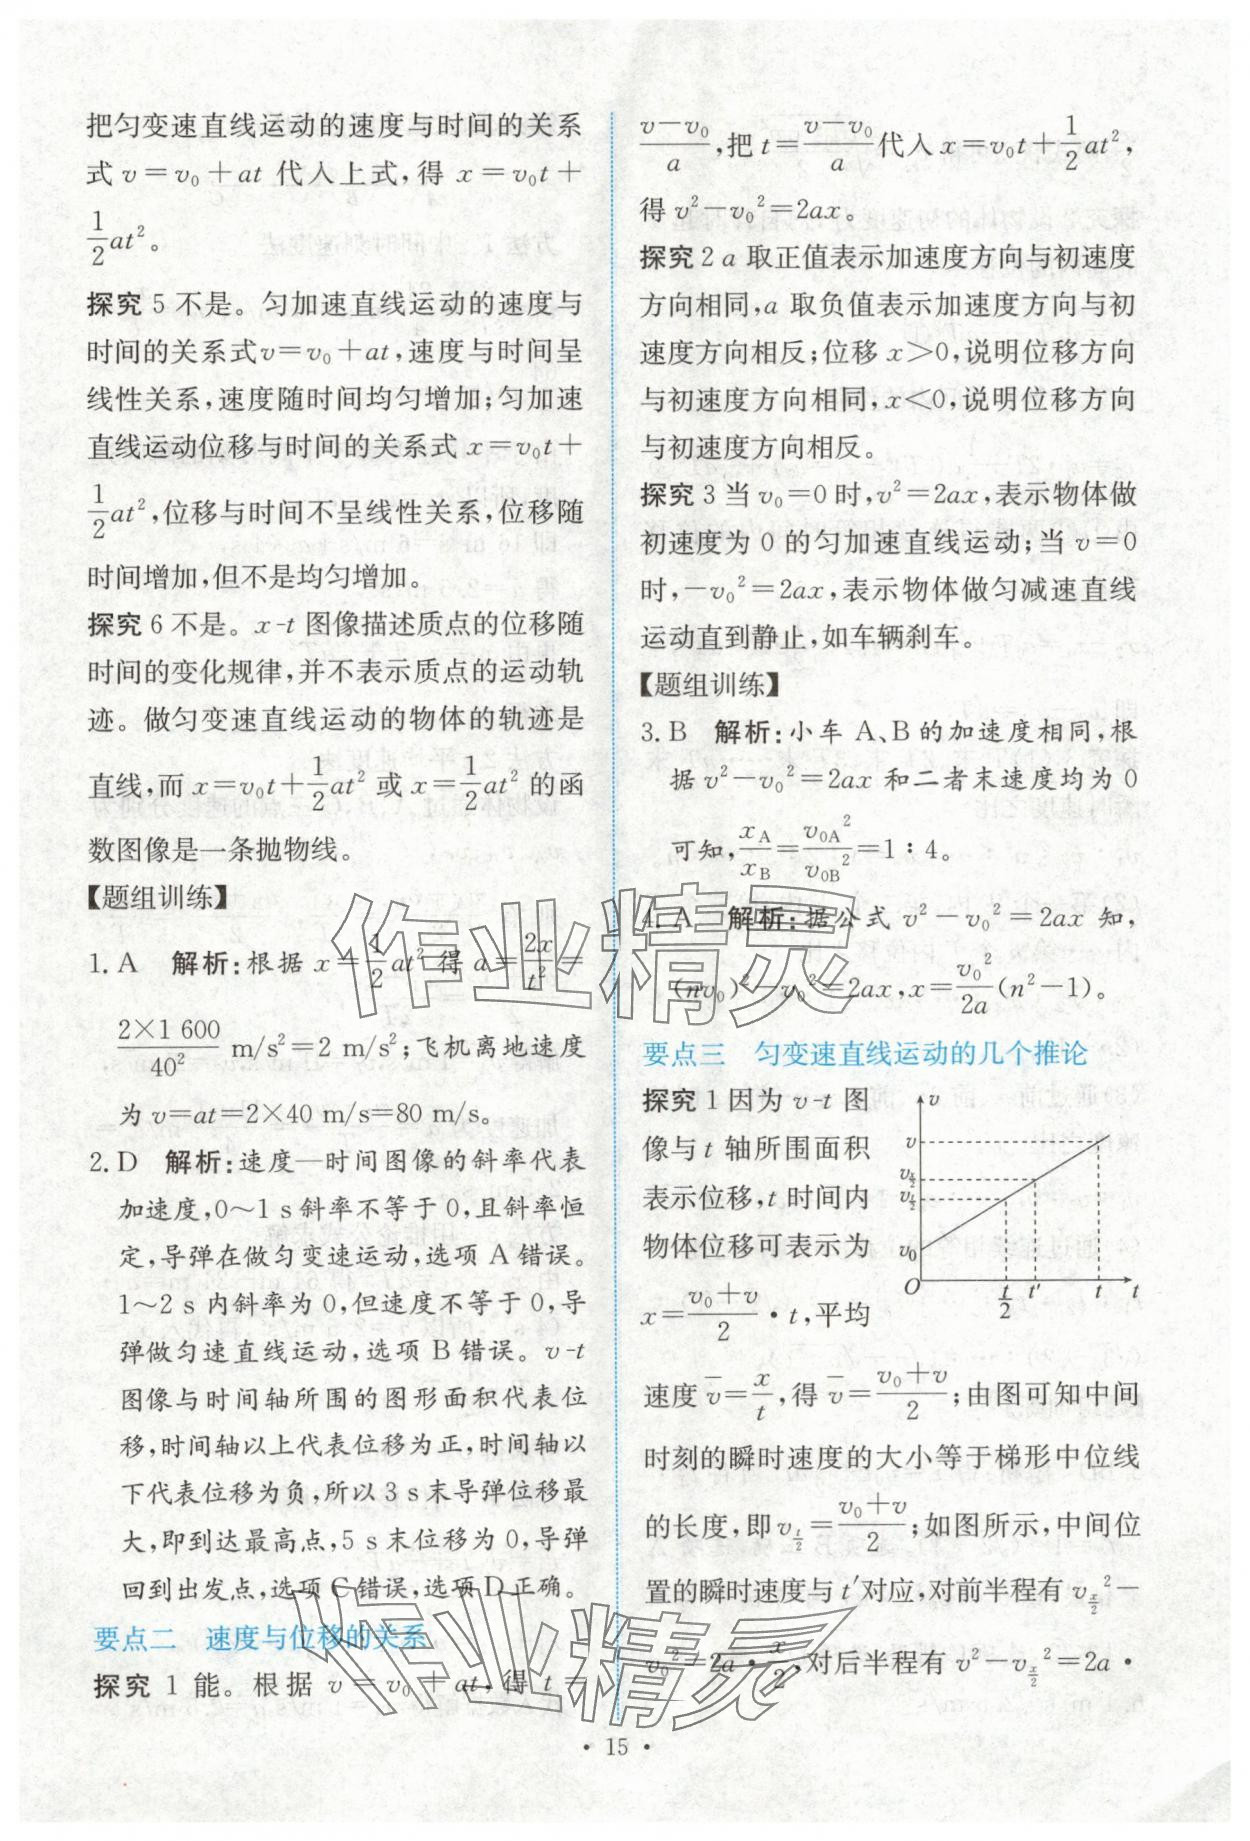 把匀变速直线运动的速度与时间的关系
式 v＝v₀＋at 代入上式，得 x＝v₀t＋
\frac{1}{2}at²。
探究 5 不是。匀加速直线运动的速度与
时间的关系式v＝v₀＋at，速度与时间呈
线性关系，速度随时间均匀增加；匀加速
直线运动位移与时间的关系式 x＝v₀t＋
\frac{1}{2}at²，位移与时间不呈线性关系，位移随
时间增加，但不是均匀增加。
探究 6 不是。x-t 图像描述质点的位移随
时间的变化规律，并不表示质点的运动轨
迹。做匀变速直线运动的物体的轨迹是
直线，而 x＝v₀t＋\frac{1}{2}at² 或 x＝\frac{1}{2}at² 的函
数图像是一条抛物线。
【题组训练】
1. A 解析：根据 x＝\frac{1}{2}at² 得 a＝\frac{2x}{t²}＝
\frac{2×1 600}{40²} m/s²＝2 m/s²；飞机离地速度
为 v＝at＝2×40 m/s＝80 m/s。
2. D 解析：速度—时间图像的斜率代表
加速度，0～1 s 斜率不等于 0，且斜率恒
定，导弹在做匀变速运动，选项 A 错误。
1～2 s 内斜率为 0，但速度不等于 0，导
弹做匀速直线运动，选项 B 错误。v-t
图像与时间轴所围的图形面积代表位
移，时间轴以上代表位移为正，时间轴以
下代表位移为负，所以 3 s 末导弹位移最
大，即到达最高点，5 s 末位移为 0，导弹
回到出发点，选项 C 错误，选项 D 正确。
要点二 速度与位移的关系
探究 1 能。根据 v＝v₀＋at，得 t＝
\frac{v－v₀}{a}，把 t＝\frac{v－v₀}{a}代入 x＝v₀t＋\frac{1}{2}at²，
得 v²－v₀²＝2ax。
探究 2 a 取正值表示加速度方向与初速度
方向相同，a 取负值表示加速度方向与初
速度方向相反；位移 x＞0，说明位移方向
与初速度方向相同，x＜0，说明位移方向
与初速度方向相反。
探究 3 当 v₀＝0 时，v²＝2ax，表示物体做
初速度为 0 的匀加速直线运动；当 v＝0
时，－v₀²＝2ax，表示物体做匀减速直线
运动直到静止，如车辆刹车。
【题组训练】
3. B 解析：小车 A、B 的加速度相同，根
据 v²－v₀²＝2ax 和二者末速度均为 0
可知，\frac{x_A}{x_B}＝\frac{v_{0A}²}{v_{0B}²}＝1∶4。
4. A 解析：据公式 v²－v₀²＝2ax 知，
(nv₀)²－v₀²＝2ax，x＝\frac{v₀²}{2a}(n²－1)。
要点三 匀变速直线运动的几个推论
探究 1 因为 v-t 图
像与 t 轴所围面积
表示位移，t 时间内
物体位移可表示为
x＝\frac{v₀＋v}{2}·t，平均
v
v
v_{\frac{x}{2}}
v_{\frac{t}{2}}
v₀
O \frac{t}{2} t′ t t
速度 \overline{v}＝\frac{x}{t}，得 \overline{v}＝\frac{v₀＋v}{2}；由图可知中间
时刻的瞬时速度的大小等于梯形中位线
的长度，即 v_{\frac{t}{2}}＝\frac{v₀＋v}{2}；如图所示，中间位
置的瞬时速度与 t′对应，对前半程有 v_{\frac{x}{2}}²－
v₀²＝2a·\frac{x}{2}，对后半程有 v²－v_{\frac{x}{2}}²＝2a·
· 15 ·
作业精灵
作业精灵